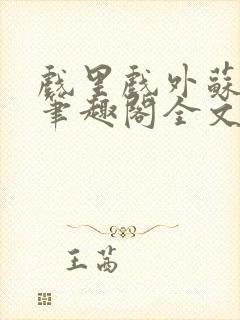 戲里戲外蘇
筆趣閣全文
王茜